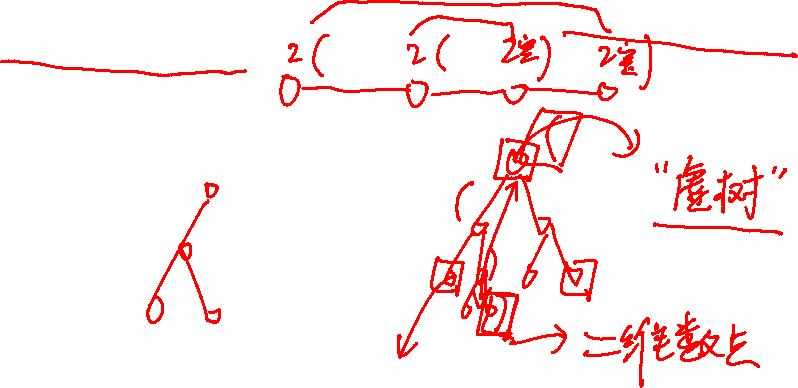 2( 2( 2宝) 2宝)
"虚树"
二维数点